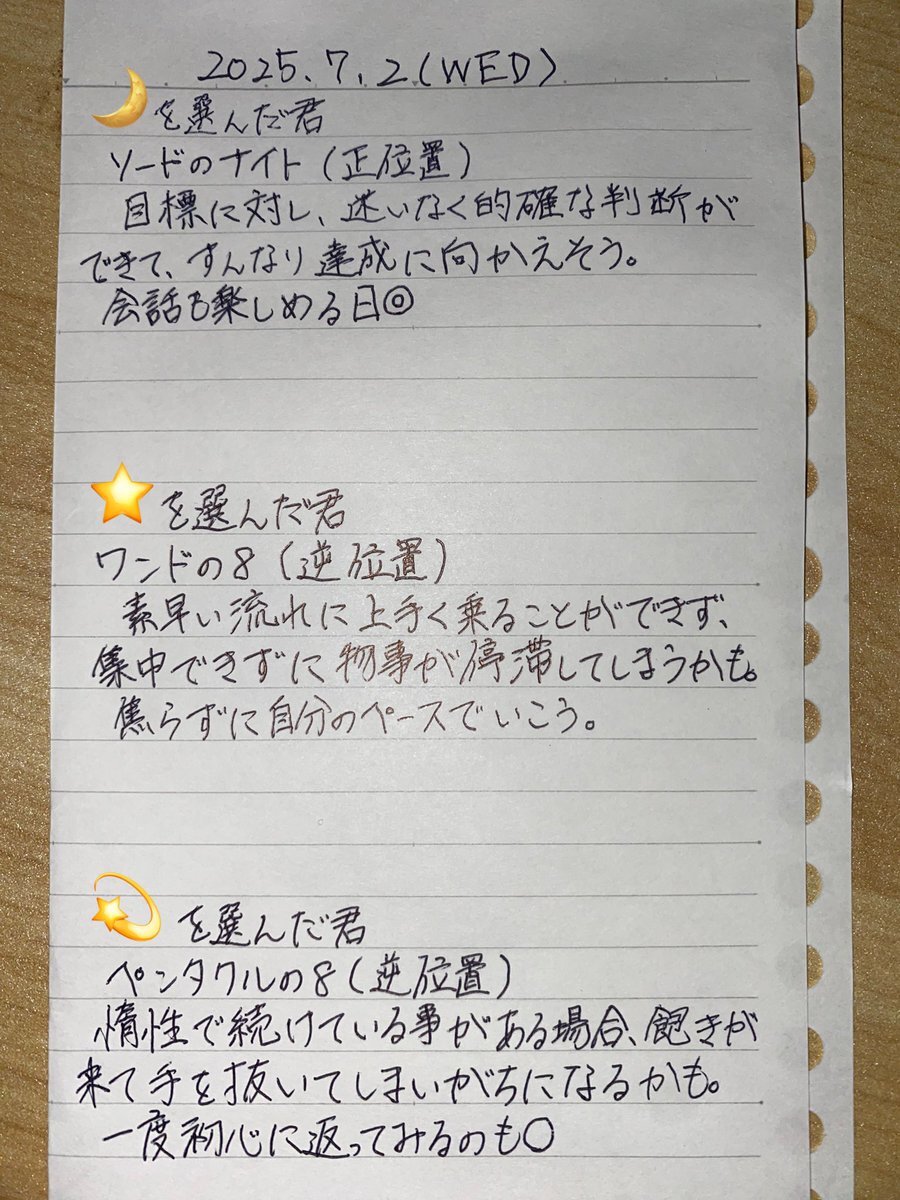 2025.7.2(WED)
🌙を選んだ君
ソードのナイト(正位置)
目標に対し、迷いなく的確な判断が
できて、すんなり達成に向かえそう。
会話も楽しめる日◎
⭐を選んだ君
ワンドの8(逆位置)
素早い流れに上手く乗ることができず、
集中できずに物事が停滞してしまうかも。
焦らずに自分のペースでいこう。
💫を選んだ君
ペンタクルの8(逆位置)
惰性で続けている事がある場合、飽きが
来て手を抜いてしまいがちになるかも。
一度初心に返ってみるのも○